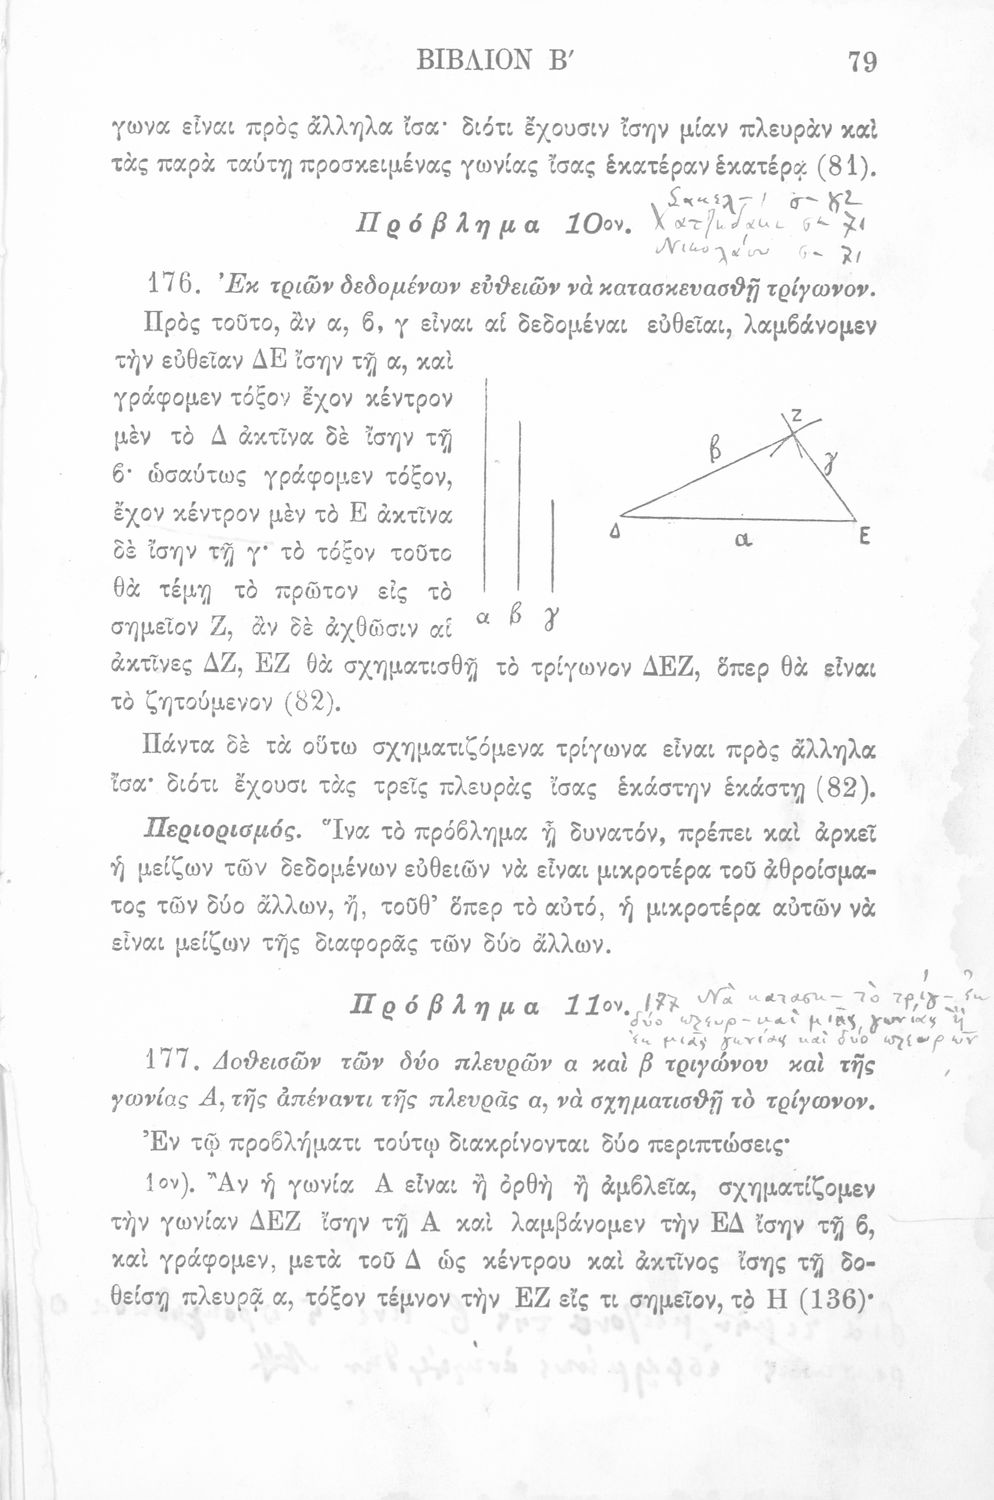 ΒΙΒΛΙΟΝ Β′ 79
γωνα εἶναι πρὸς ἄλληλα ἴσα· διότι ἔχουσιν ἴσην μίαν πλευρὰν καὶ
τὰς παρὰ ταύτῃ προσκειμένας γωνίας ἴσας ἑκατέραν ἑκατέρᾳ (81).
Πρόβλημα 10ον.
176. Ἐκ τριῶν δεδομένων εὐθειῶν νὰ κατασκευασθῇ τρίγωνον.
Πρὸς τοῦτο, ἂν α, ϐ, γ εἶναι αἱ δεδομέναι εὐθεῖαι, λαμϐάνομεν
τὴν εὐθεῖαν ΔΕ ἴσην τῇ α, καὶ
γράφομεν τόξον ἔχον κέντρον
μὲν τὸ Δ ἀκτῖνα δὲ ἴσην τῇ
ϐ· ὡσαύτως γράφομεν τόξον,
ἔχον κέντρον μὲν τὸ Ε ἀκτῖνα
δὲ ἴσην τῇ γ· τὸ τόξον τοῦτο
θὰ τέμῃ τὸ πρῶτον εἰς τὸ
σημεῖον Ζ, ἂν δὲ ἀχθῶσιν αἱ
α β γ
Ζ
β γ
Δ α Ε
ἀκτῖνες ΔΖ, ΕΖ θὰ σχηματισθῇ τὸ τρίγωνον ΔΕΖ, ὅπερ θὰ εἶναι
τὸ ζητούμενον (82).
Πάντα δὲ τὰ οὕτω σχηματιζόμενα τρίγωνα εἶναι πρὸς ἄλληλα
ἴσα· διότι ἔχουσι τὰς τρεῖς πλευρὰς ἴσας ἑκάστην ἑκάστῃ (82).
Περιορισμός. Ἵνα τὸ πρόϐλημα ᾖ δυνατόν, πρέπει καὶ ἀρκεῖ
ἡ μείζων τῶν δεδομένων εὐθειῶν νὰ εἶναι μικροτέρα τοῦ ἀθροίσμα-
τος τῶν δύο ἄλλων, ἤ, τοῦθ’ ὅπερ τὸ αὐτό, ἡ μικροτέρα αὐτῶν νὰ
εἶναι μείζων τῆς διαφορᾶς τῶν δύο ἄλλων.
Πρόβλημα 11ον. 177 Νὰ κατασκ– τὸ τρίγ– ἐκ
δύο πλευρ– καὶ μιᾶς γωνίας ἢ
ἐκ μιᾶς γωνίας καὶ δύο πλευρῶν
177. Δοθεισῶν τῶν δύο πλευρῶν α καὶ β τριγώνου καὶ τῆς
γωνίας Α, τῆς ἀπέναντι τῆς πλευρᾶς α, νὰ σχηματισθῇ τὸ τρίγωνον.
Ἐν τῷ προϐλήματι τούτῳ διακρίνονται δύο περιπτώσεις·
1ον). Ἂν ἡ γωνία Α εἶναι ἢ ὀρθὴ ἢ ἀμϐλεῖα, σχηματίζομεν
τὴν γωνίαν ΔΕΖ ἴσην τῇ Α καὶ λαμβάνομεν τὴν ΕΔ ἴσην τῇ ϐ,
καὶ γράφομεν, μετὰ τοῦ Δ ὡς κέντρου καὶ ἀκτῖνος ἴσης τῇ δο-
θείσῃ πλευρᾷ α, τόξον τέμνον τὴν ΕΖ εἴς τι σημεῖον, τὸ Η (136)·